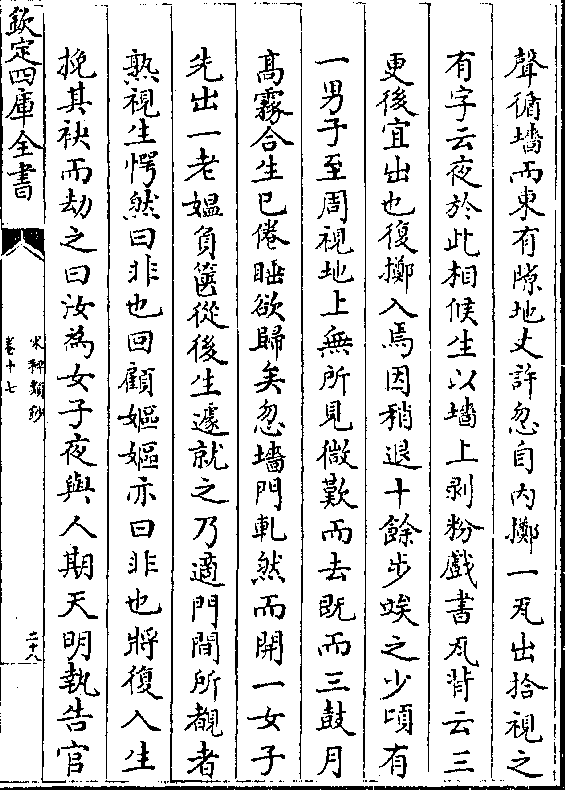 聲循墻而東有隙地丈許忽自内擲一瓦出拾視之
有字云夜於此相候生以墻上剥粉戲書瓦背云三
更後宜出也復擲入焉因稍退十餘步竢之少頃有
一男子至周視地上無所見㣲歎而去既而三鼓月
髙霧合生已倦睡欲歸矣忽墻門軋然而開一女子
先出一老媪負篋從後生遽就之乃適門間所覩者
熟視生愕然曰非也回顧嫗嫗亦曰非也將復入生
挽其袂而劫之曰汝為女子夜與人期天明執告官
欽定四庫全書
宋稗類鈔
卷十七
二十八